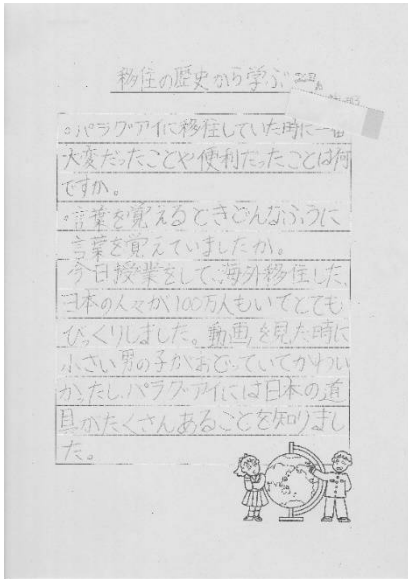 移住の歴史から学ぶ
。パラグアイに移住していた時に一番
大変だったことや便利だったことは何
ですか。
。言葉を覚えるときどんなふうに
言葉を覚えていましたか。
今日授業をして、海外移住した、
日本の人々が100万人もいてとても
びっくりしました。動画を見た時に
小さい男の子がおどっていてかわい
かったし、パラグアイには日本の道
具がたくさんあることを知りまし
た。